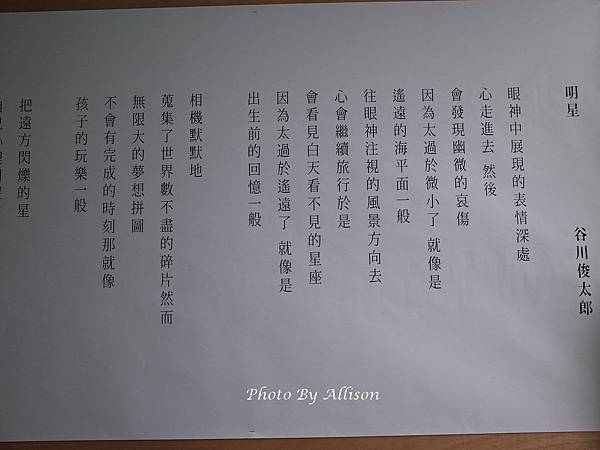 明星
谷川俊太郎
眼神中展現的表情深處
心走進去 然後
會發現幽微的哀傷
因為太過於微小了 就像是
遙遠的海平面一般
往眼神注視的風景方向去
心會繼續旅行於是
會看見白天看不見的星座
因為太過於遙遠了 就像是
出生前的回憶一般
相機默默地
蒐集了世界數不盡的碎片然而
無限大的夢想拼圖
不會有完成的時刻那就像
孩子的玩樂一般
把遠方閃爍的星
Photo By Allison